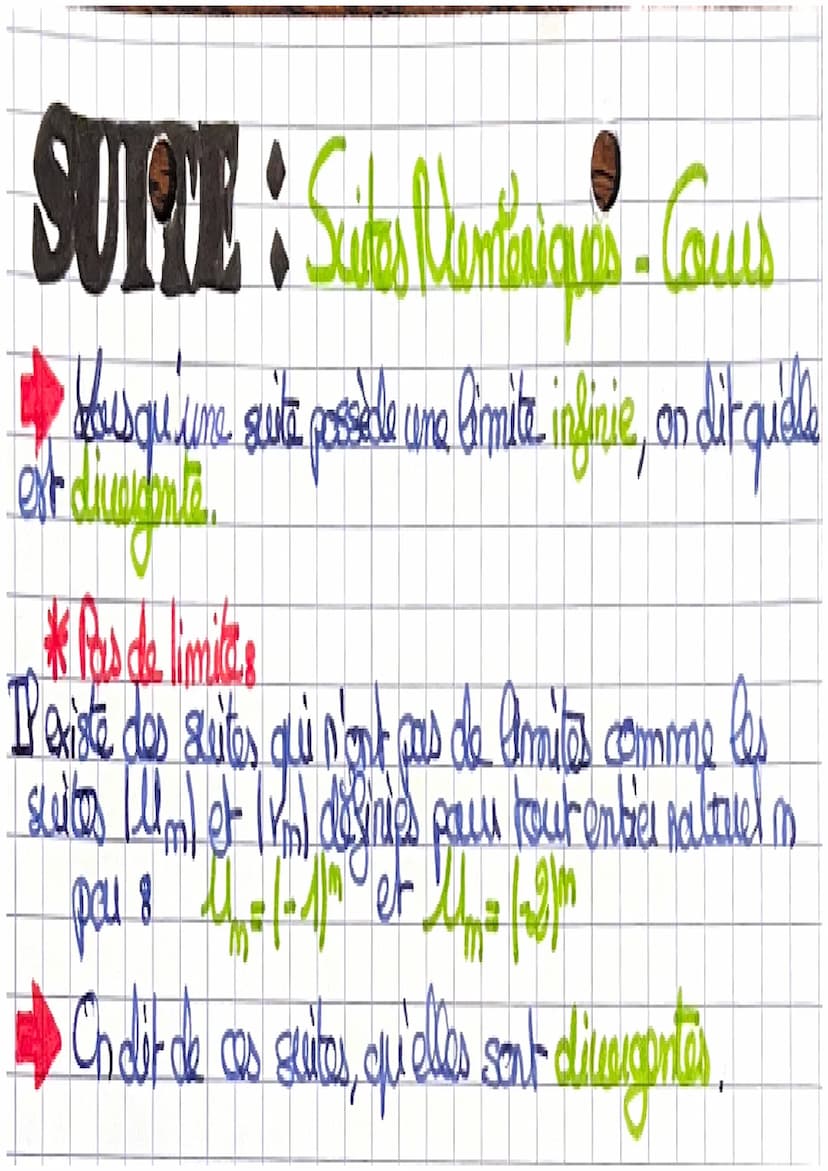 SUITE : Suites Numériques - Cours
Lorsqu'une suite possède une limite infinie, on dit qu'elle
est divergente.
* Pas de limite :
Il existe des suites qui n'ont pas de limites comme les
suites (Un) et (Vn) définies pour tout entier naturel n
par : Un = (-1)^n et Un = (-2)^n
On dit de ces suites, qu'elles sont divergentes.